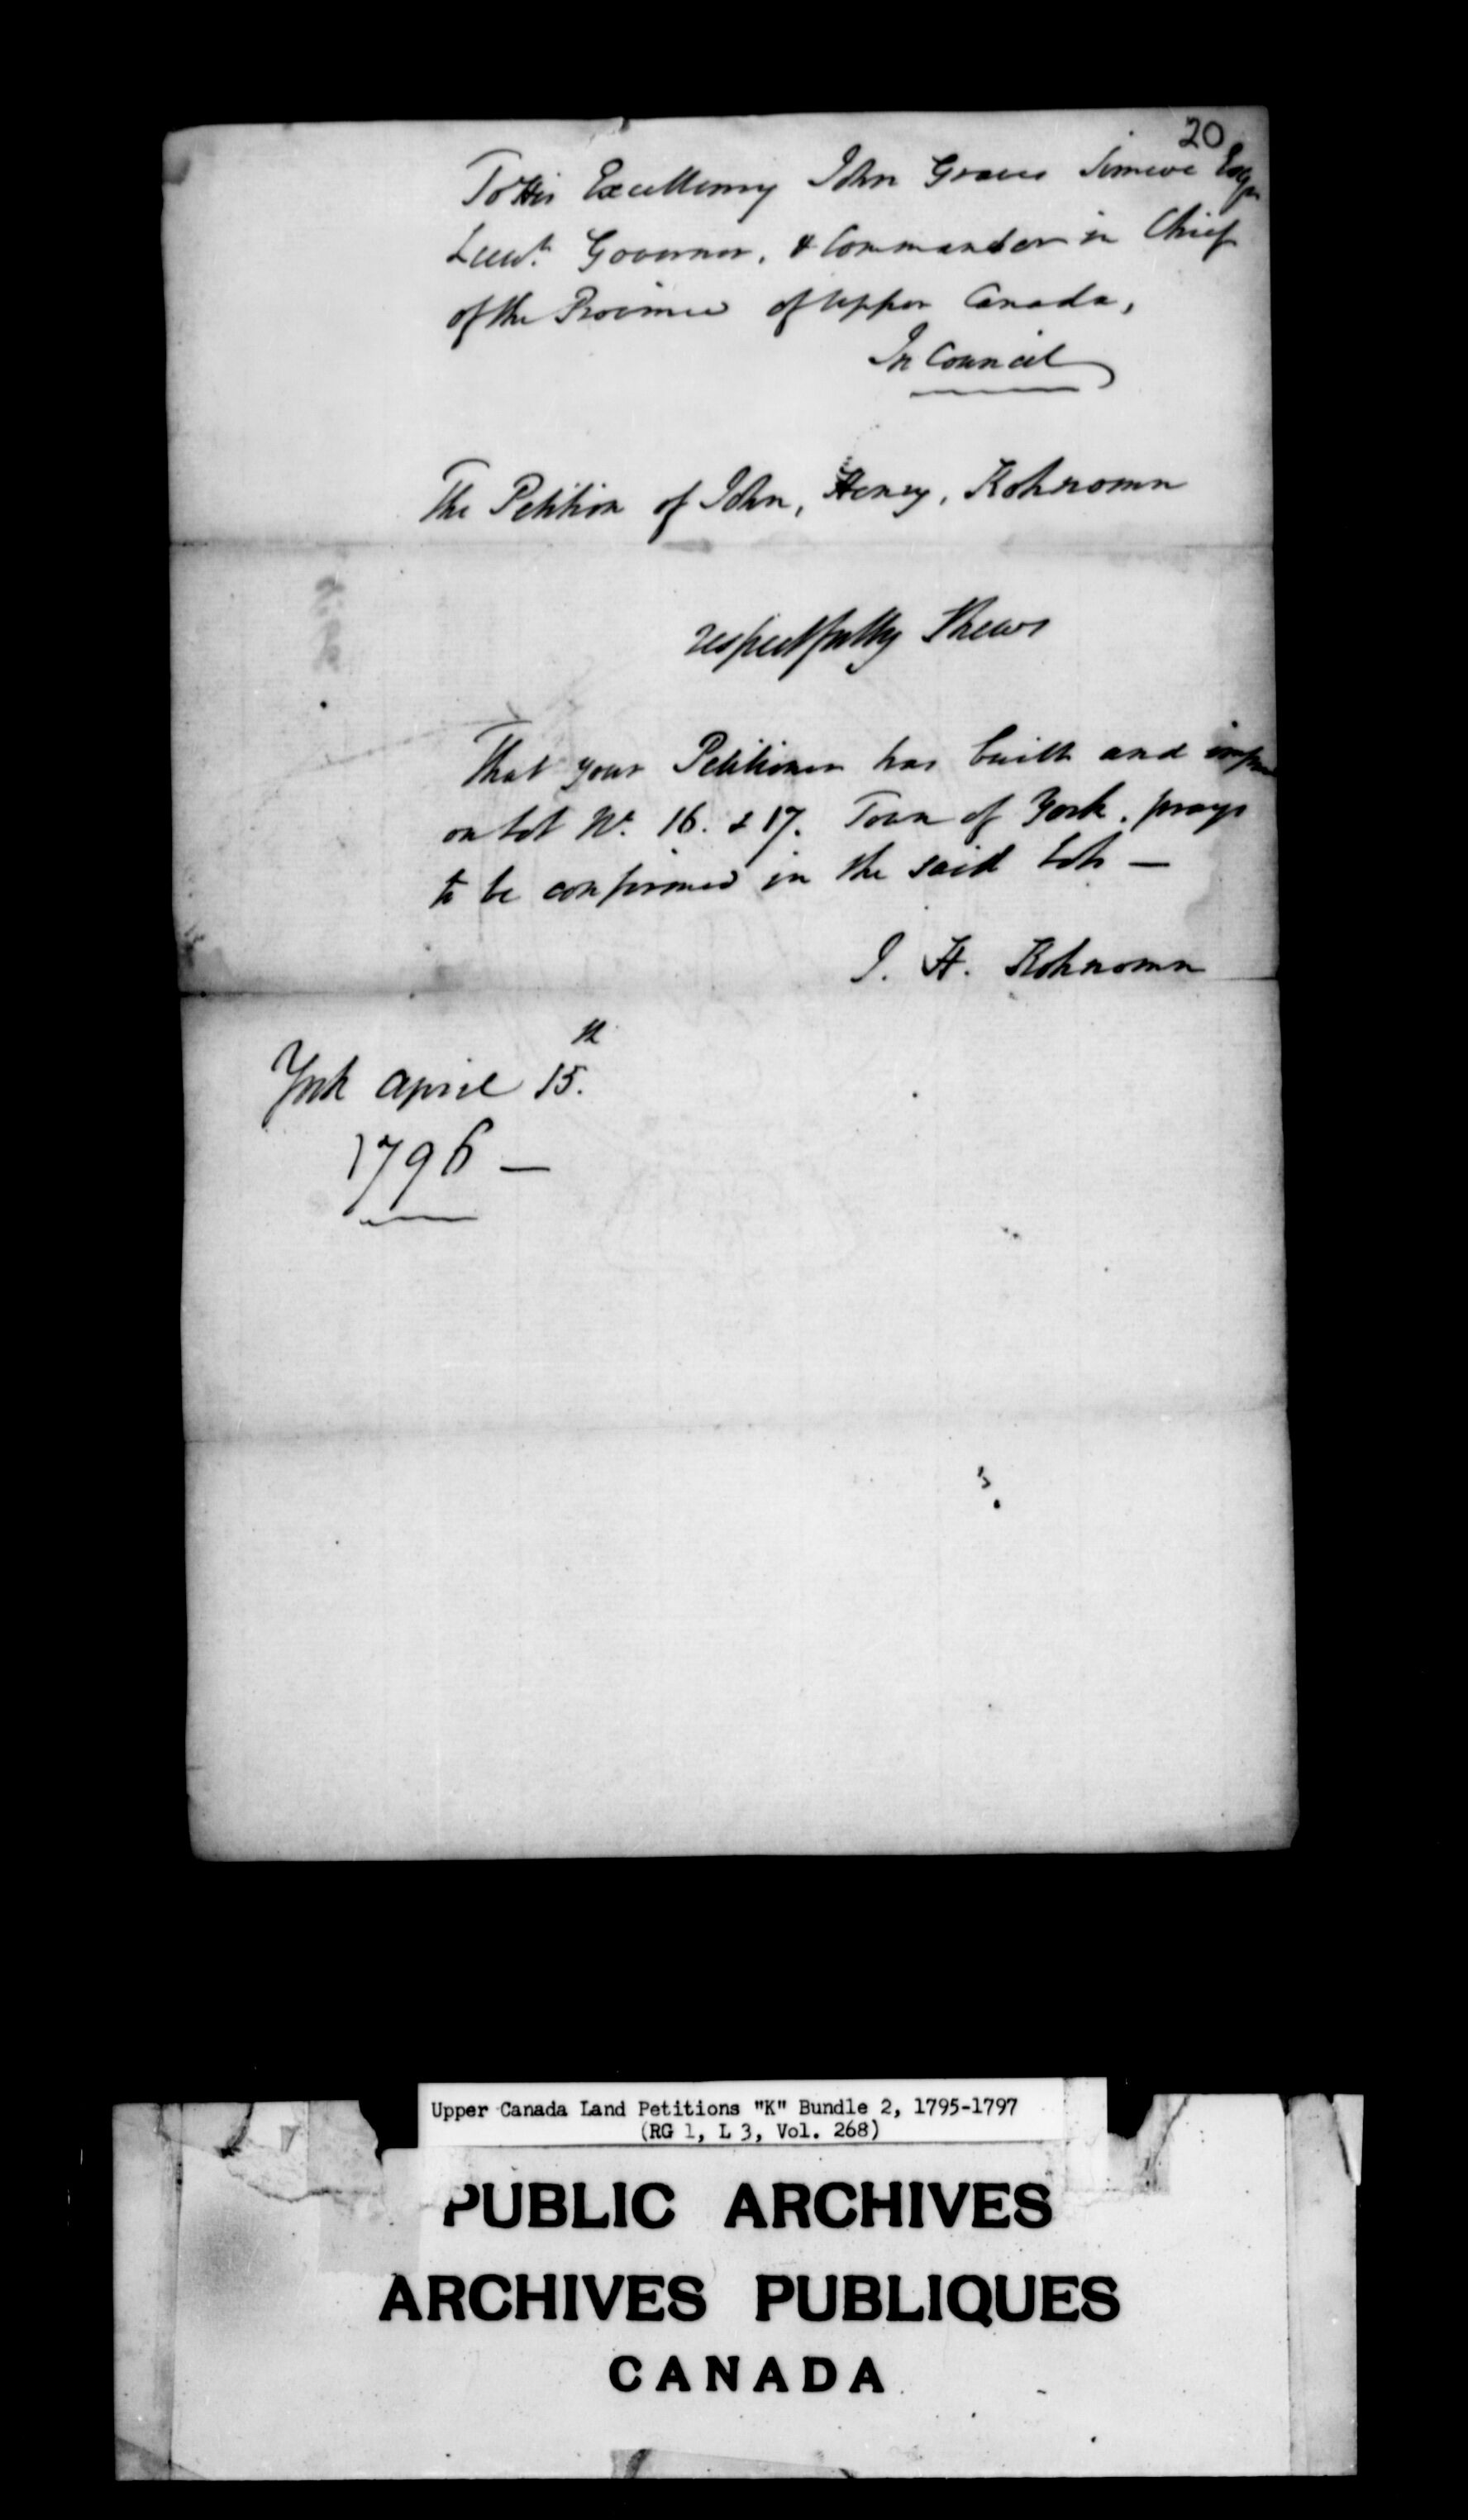 20
To His Excellency John Graves Simcoe Esqr
Lieut. Governor, & Commander in Chief
of the Province of Upper Canada,
In Council
The Petition of John, Henry, Kohnomn
respectfully Shews
That your Petitioner has built and
on Lot No. 16. & 17. Town of York. prays
to be confirmed in the said Lots —
J. H. Kohnomn
York April 15th.
1796 —
Upper Canada Land Petitions "K" Bundle 2, 1795-1797
(RG 1, L 3, Vol. 268)
PUBLIC ARCHIVES
ARCHIVES PUBLIQUES
CANADA